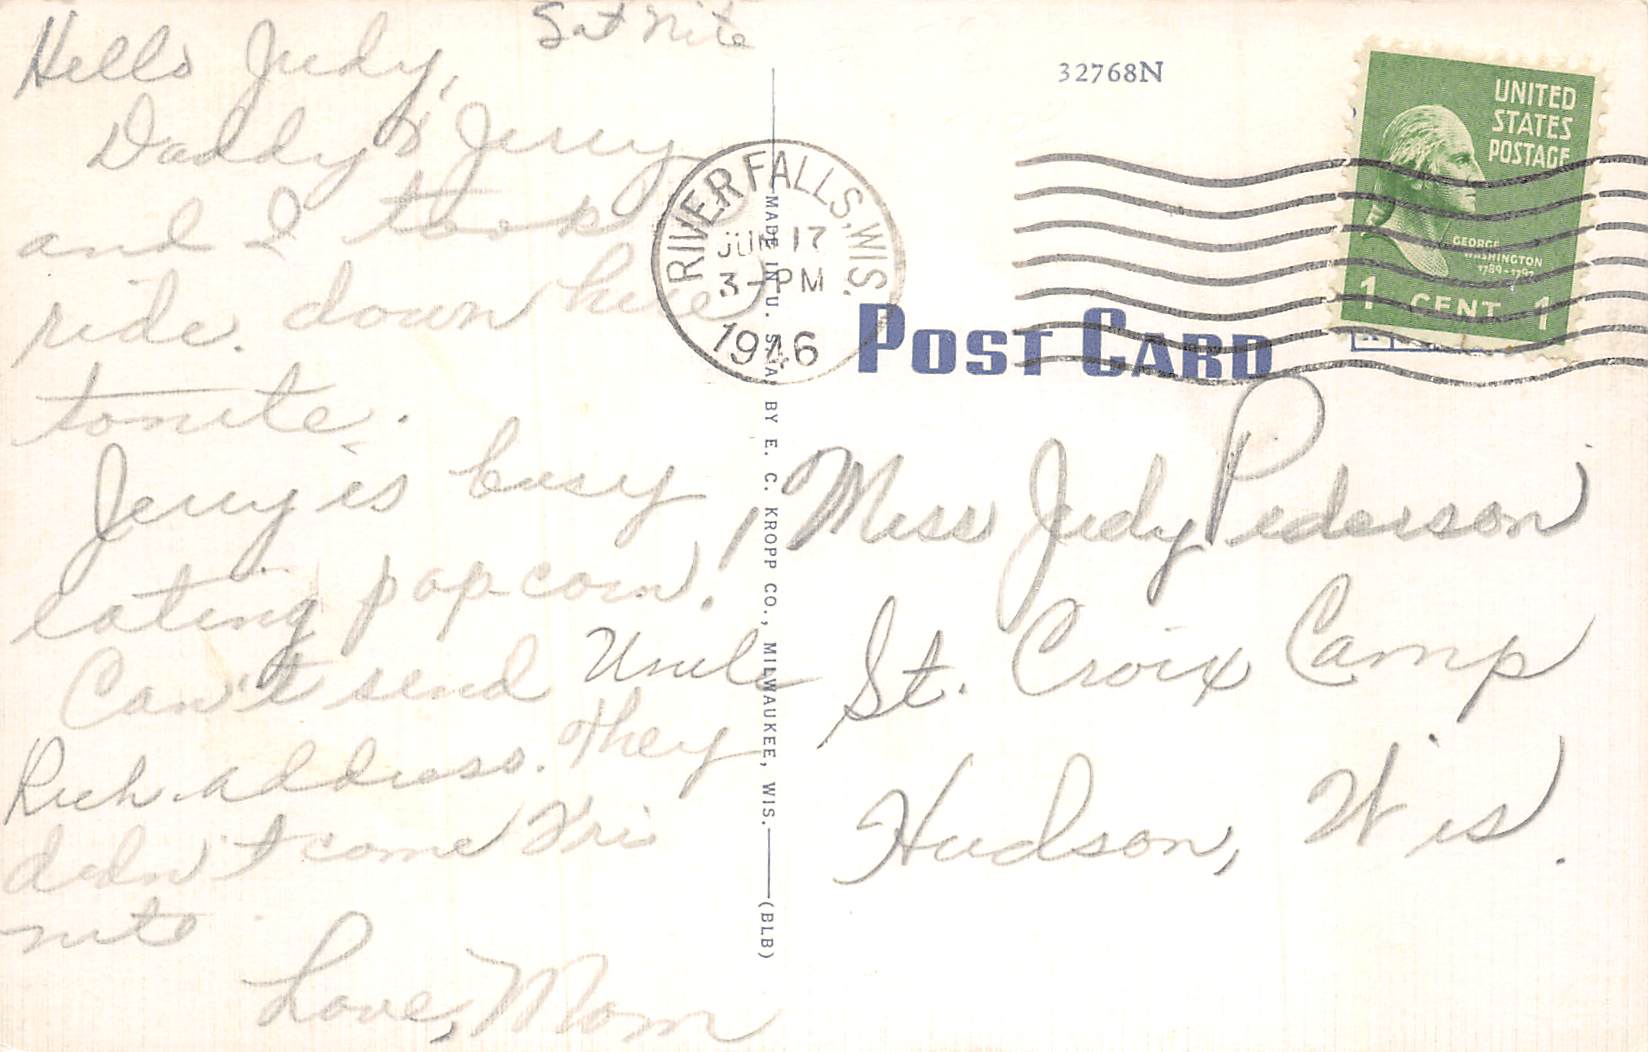 Sat Nite
Hello Judy,
Daddy & Jerry
and I took
ride. down here
tonite.
Jerry is busy
eating pop-corn!
Can't send Uncle
Rich address. They
didn't come Fri
nite
Love, Mom
32768N
UNITED
STATES
POSTAGE
GEORGE
WASHINGTON
1789-1797
1 CENT 1
RIVER FALLS, WIS.
JUN 17
3-PM
1946
POST CARD
MADE IN U. S. A. BY E. C. KROPP CO., MILWAUKEE, WIS.—(BLB)
Miss Judy Pederson
St. Croix Camp
Hudson, Wis.